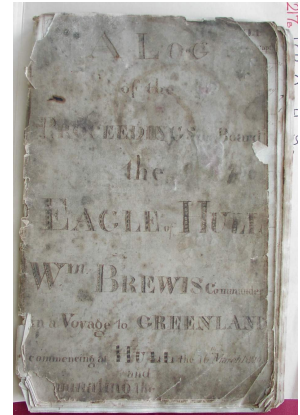 A Log
of the
PROCEEDINGS on Board
the
EAGLE of HULL
Wm BREWIS Commander
in a Voyage to GREENLAND
commencing at HULL the 16
and
the